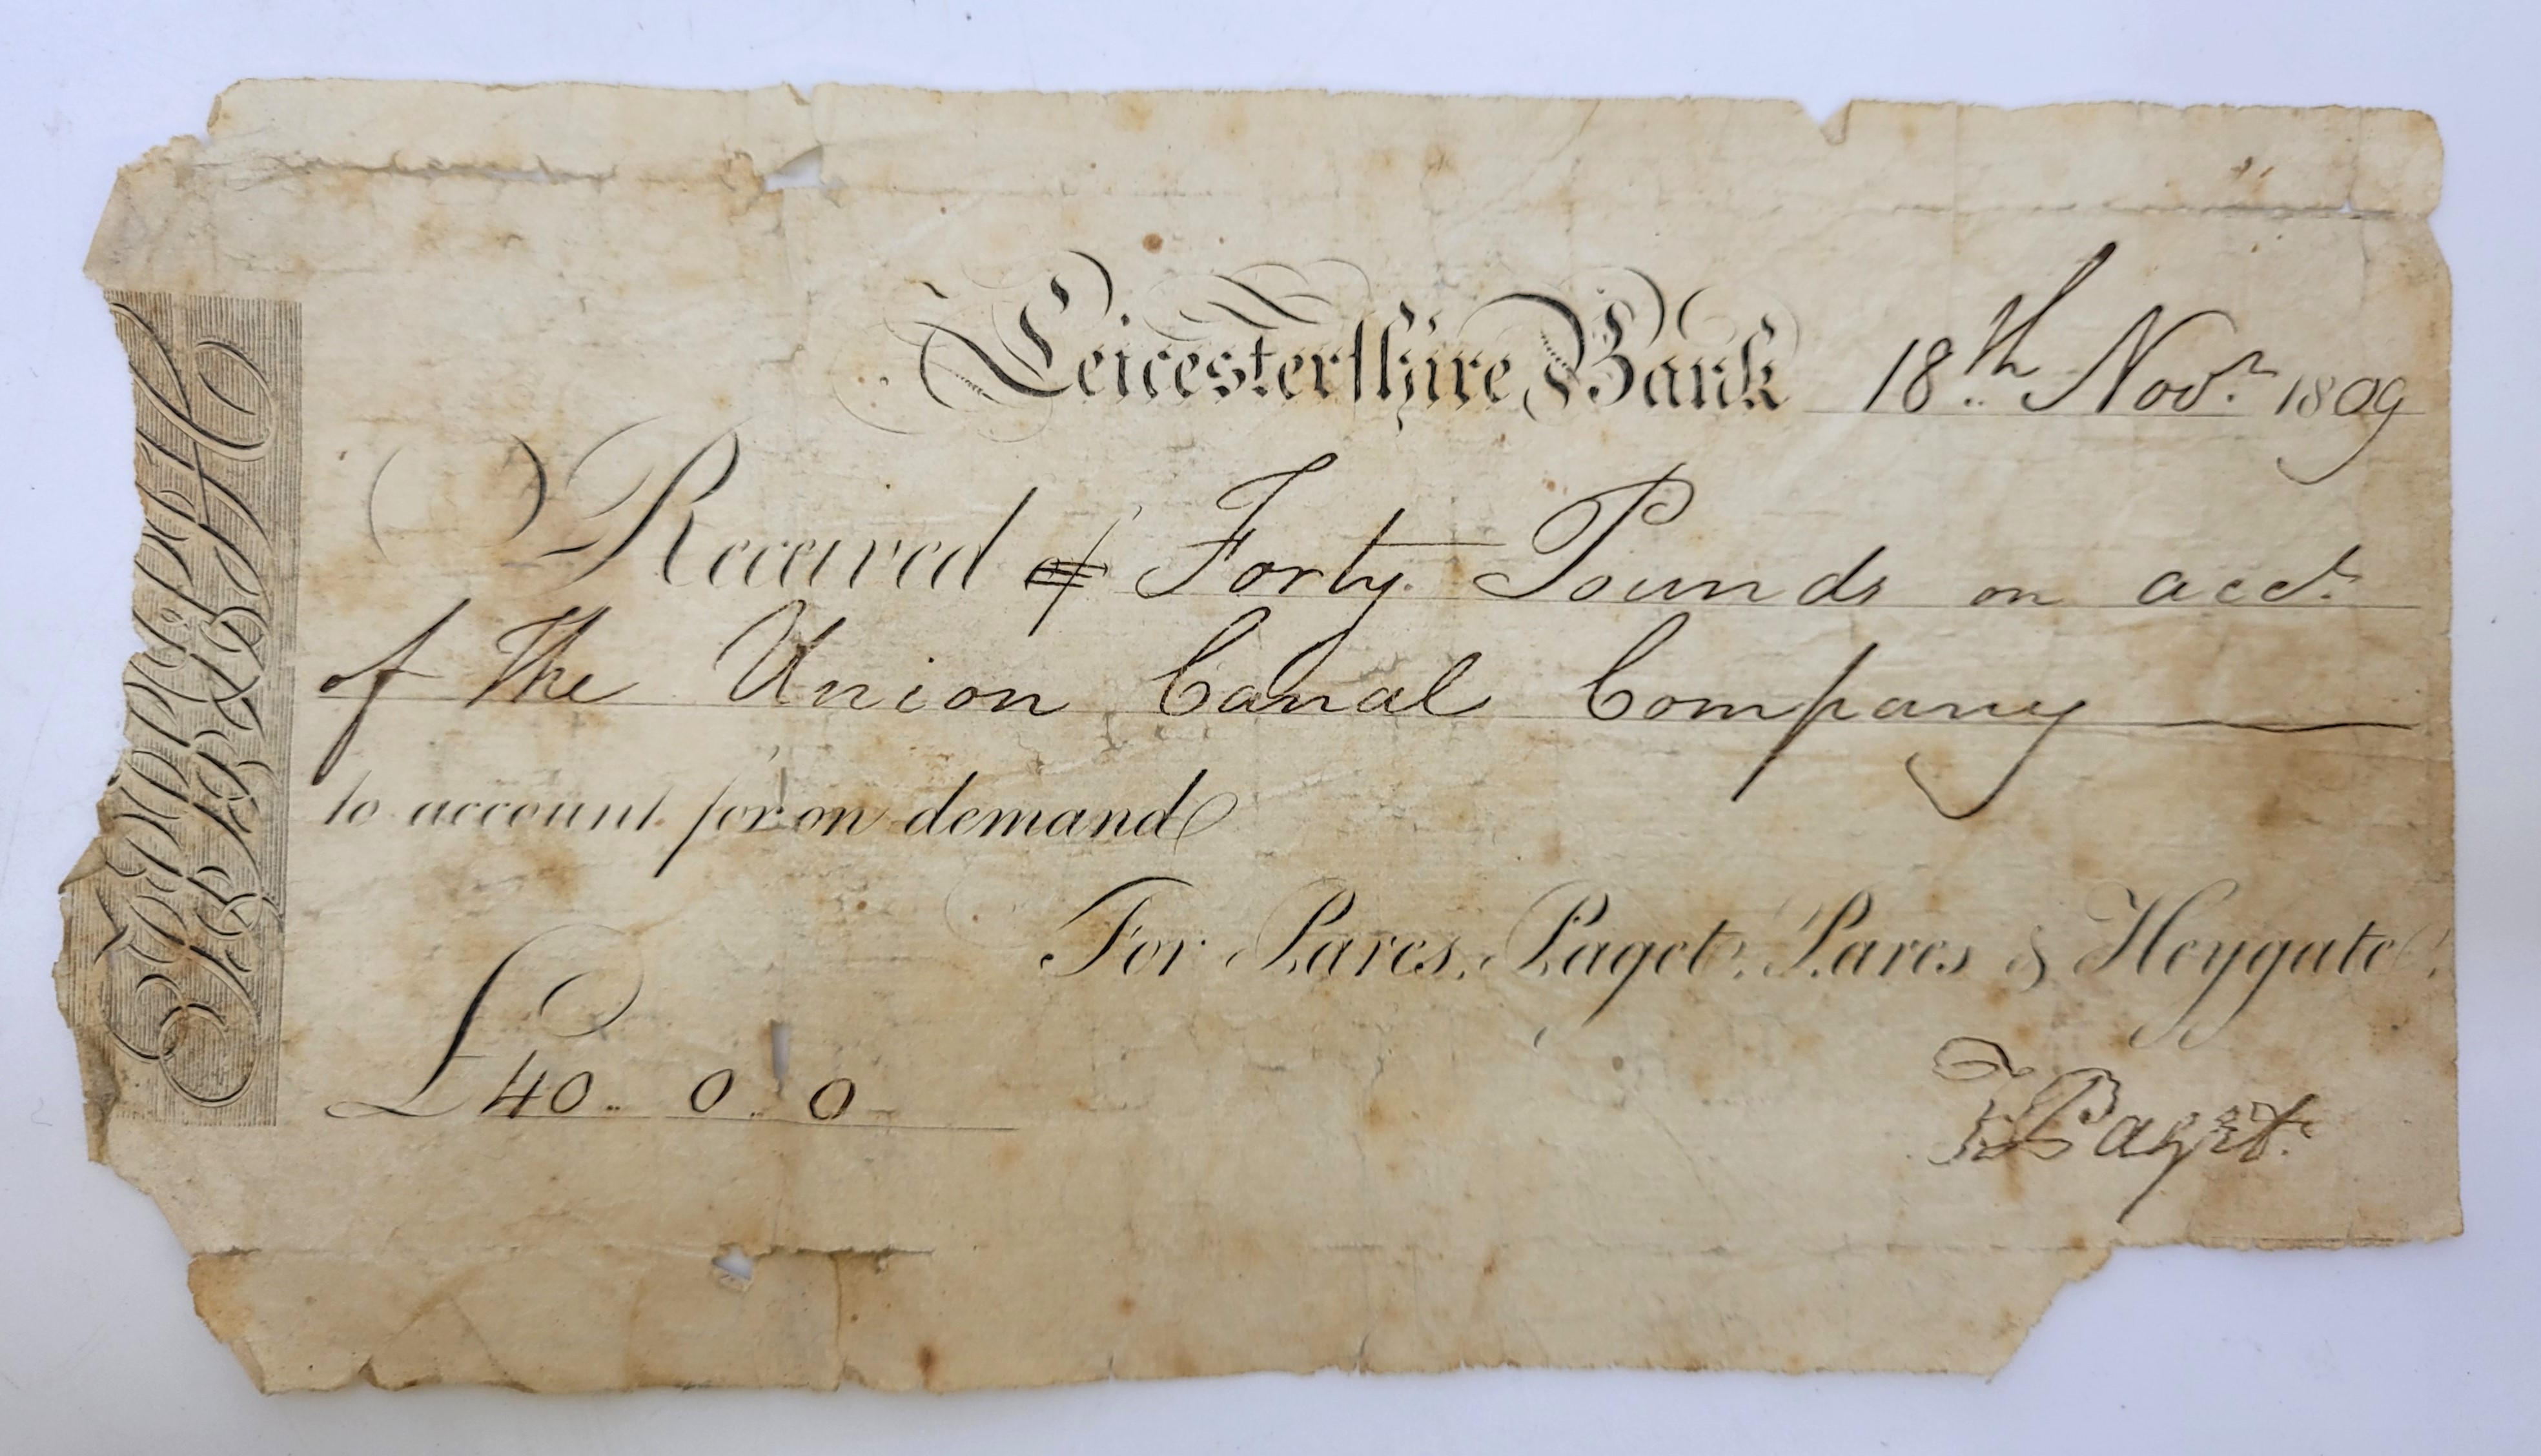 Leicestershire Bank 18th Novr. 1809
Received of Forty Pounds on acct.
of The Union Canal Company
to account for on demand
For Pares, Paget, Pares & Heygate.
£40.. 0.. 0
Paget